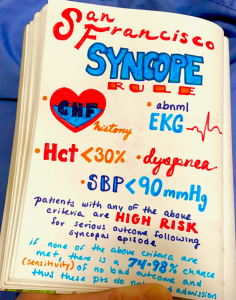 San
Francisco
SYNCOPE
RULE
• CHF
history
• abnml
EKG
• Hct <30%
• dyspnea
• SBP <90mmHg
patients with any of the above
criteria are HIGH RISK
for serious outcome following
syncopal episode
if none of the above criteria are
met, there is a 74-98% chance
(sensitivity) of no bad outcome and
thus these pts do not admission